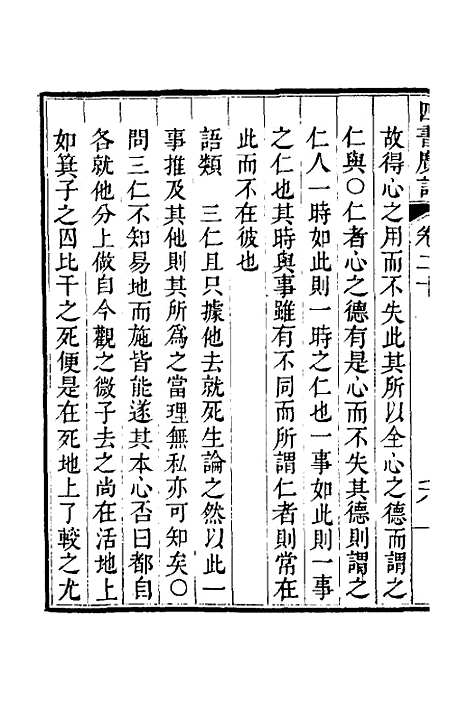 故得心之用而不失此其所以全心之德而謂之
仁與〇仁者心之德有是心而不失其德則謂之
仁人一時如此則一時之仁也一事如此則一事
之仁也其時與事雖有不同而所謂仁者則常在
此而不在彼也
語類　三仁且只據他去就死生論之然以此一
事推及其他則其所為之當理無私亦可知矣〇
問三仁不知易地而施皆能遂其本心否曰都自
各就他分上做自今觀之微子去之尚在活地上
如箕子之囚比干之死便是在死地上了較之尤